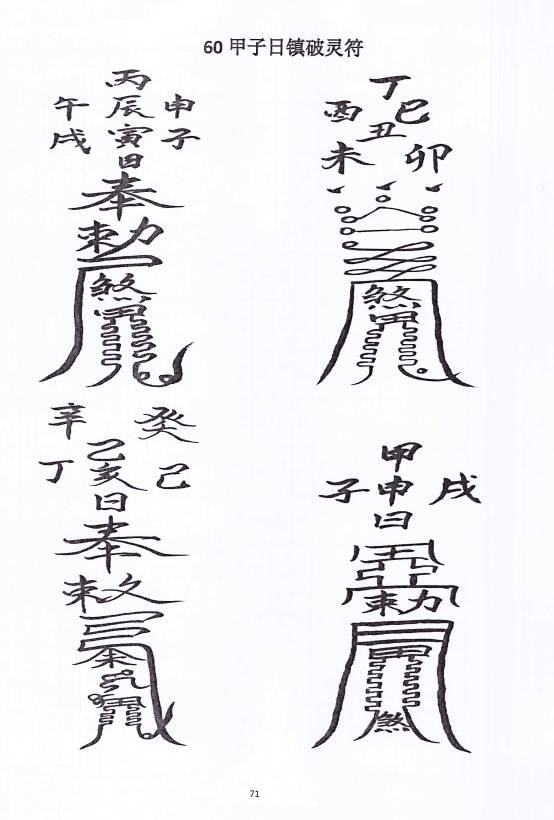 60 甲子日镇破灵符
丙
午 辰 申
戌 寅 子
日
奉
勅
煞
丁
酉 巳
丑
未 卯
煞
辛 癸
乙
丁 亥 己
日
奉
敕
甲
子 申 戌
日
勅
煞
71